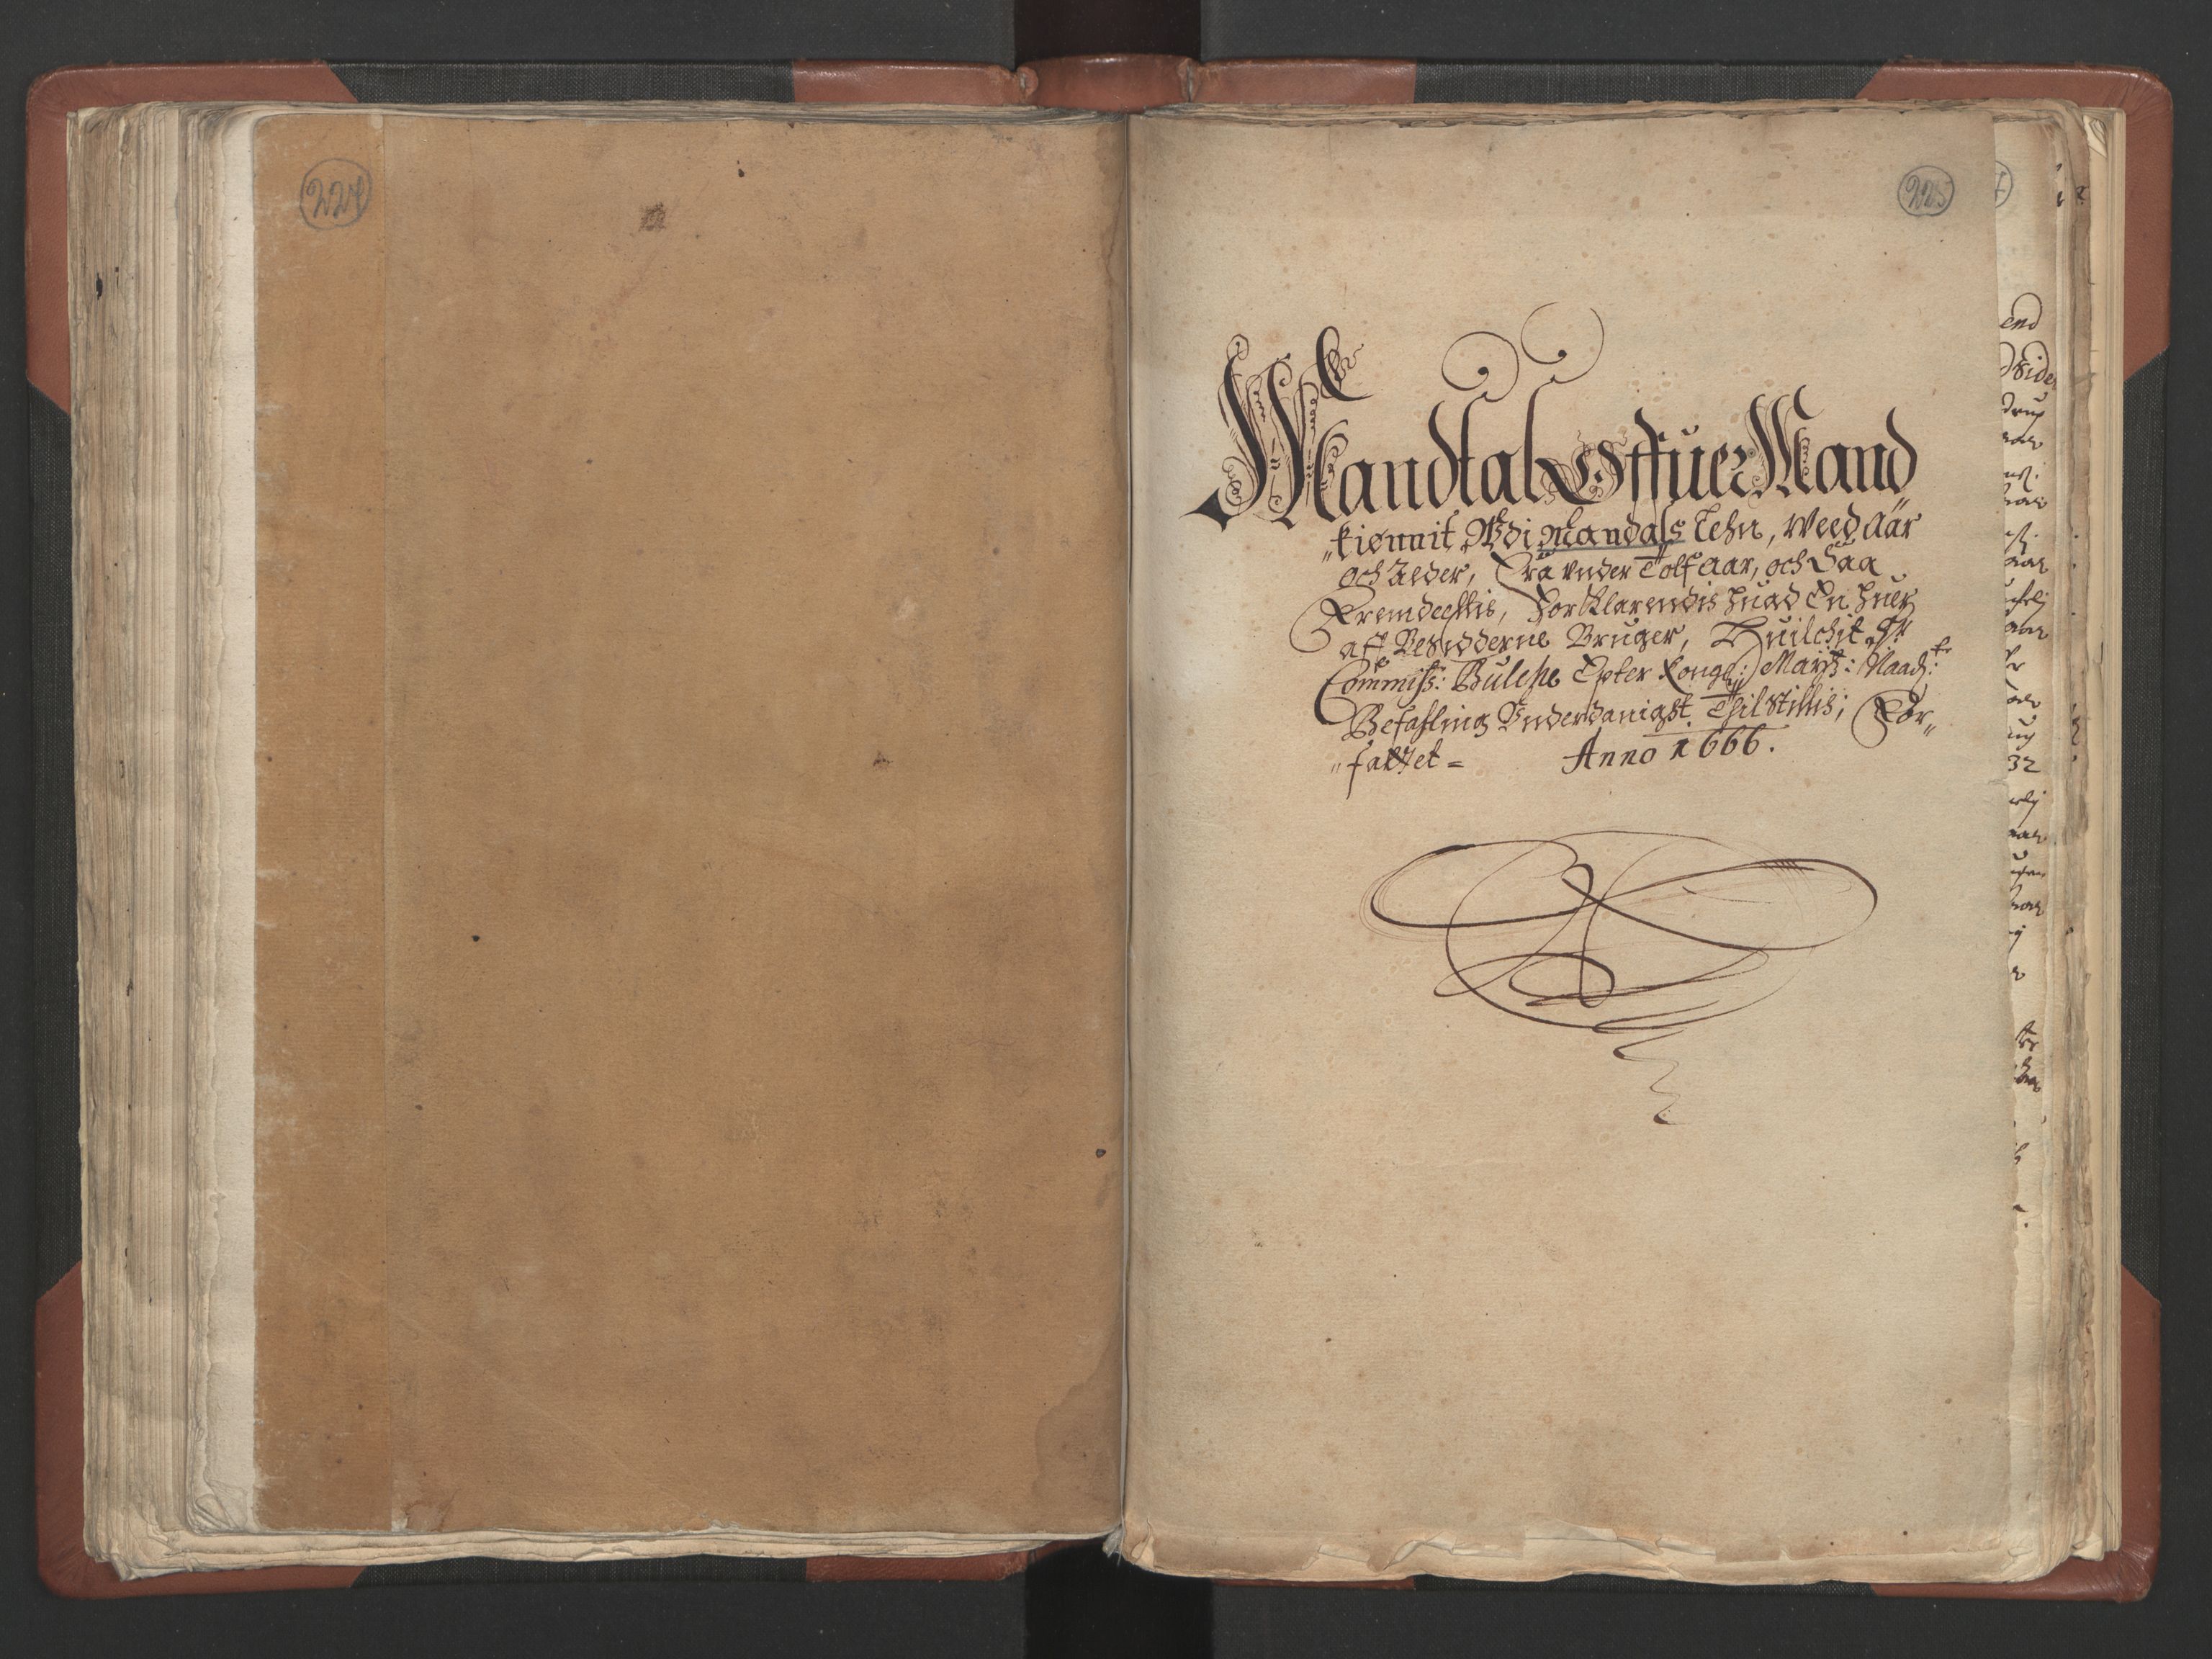 224
225
Mandtal Offuer Mand
„kiønnit Udi Mandals Lehn, weed Aar
och Alder, Fra vnder Tolf Aar, och Saa
Fremdeellis, Forklarendis huad En huer
aff Besidderne Bruger, Huilchit Hr
Commiss: Bulche Epter Kongl: Mayts: Naadste
Befahling Underdanigst Thilstillis; For„
„fattet = Anno 1666.
end
32